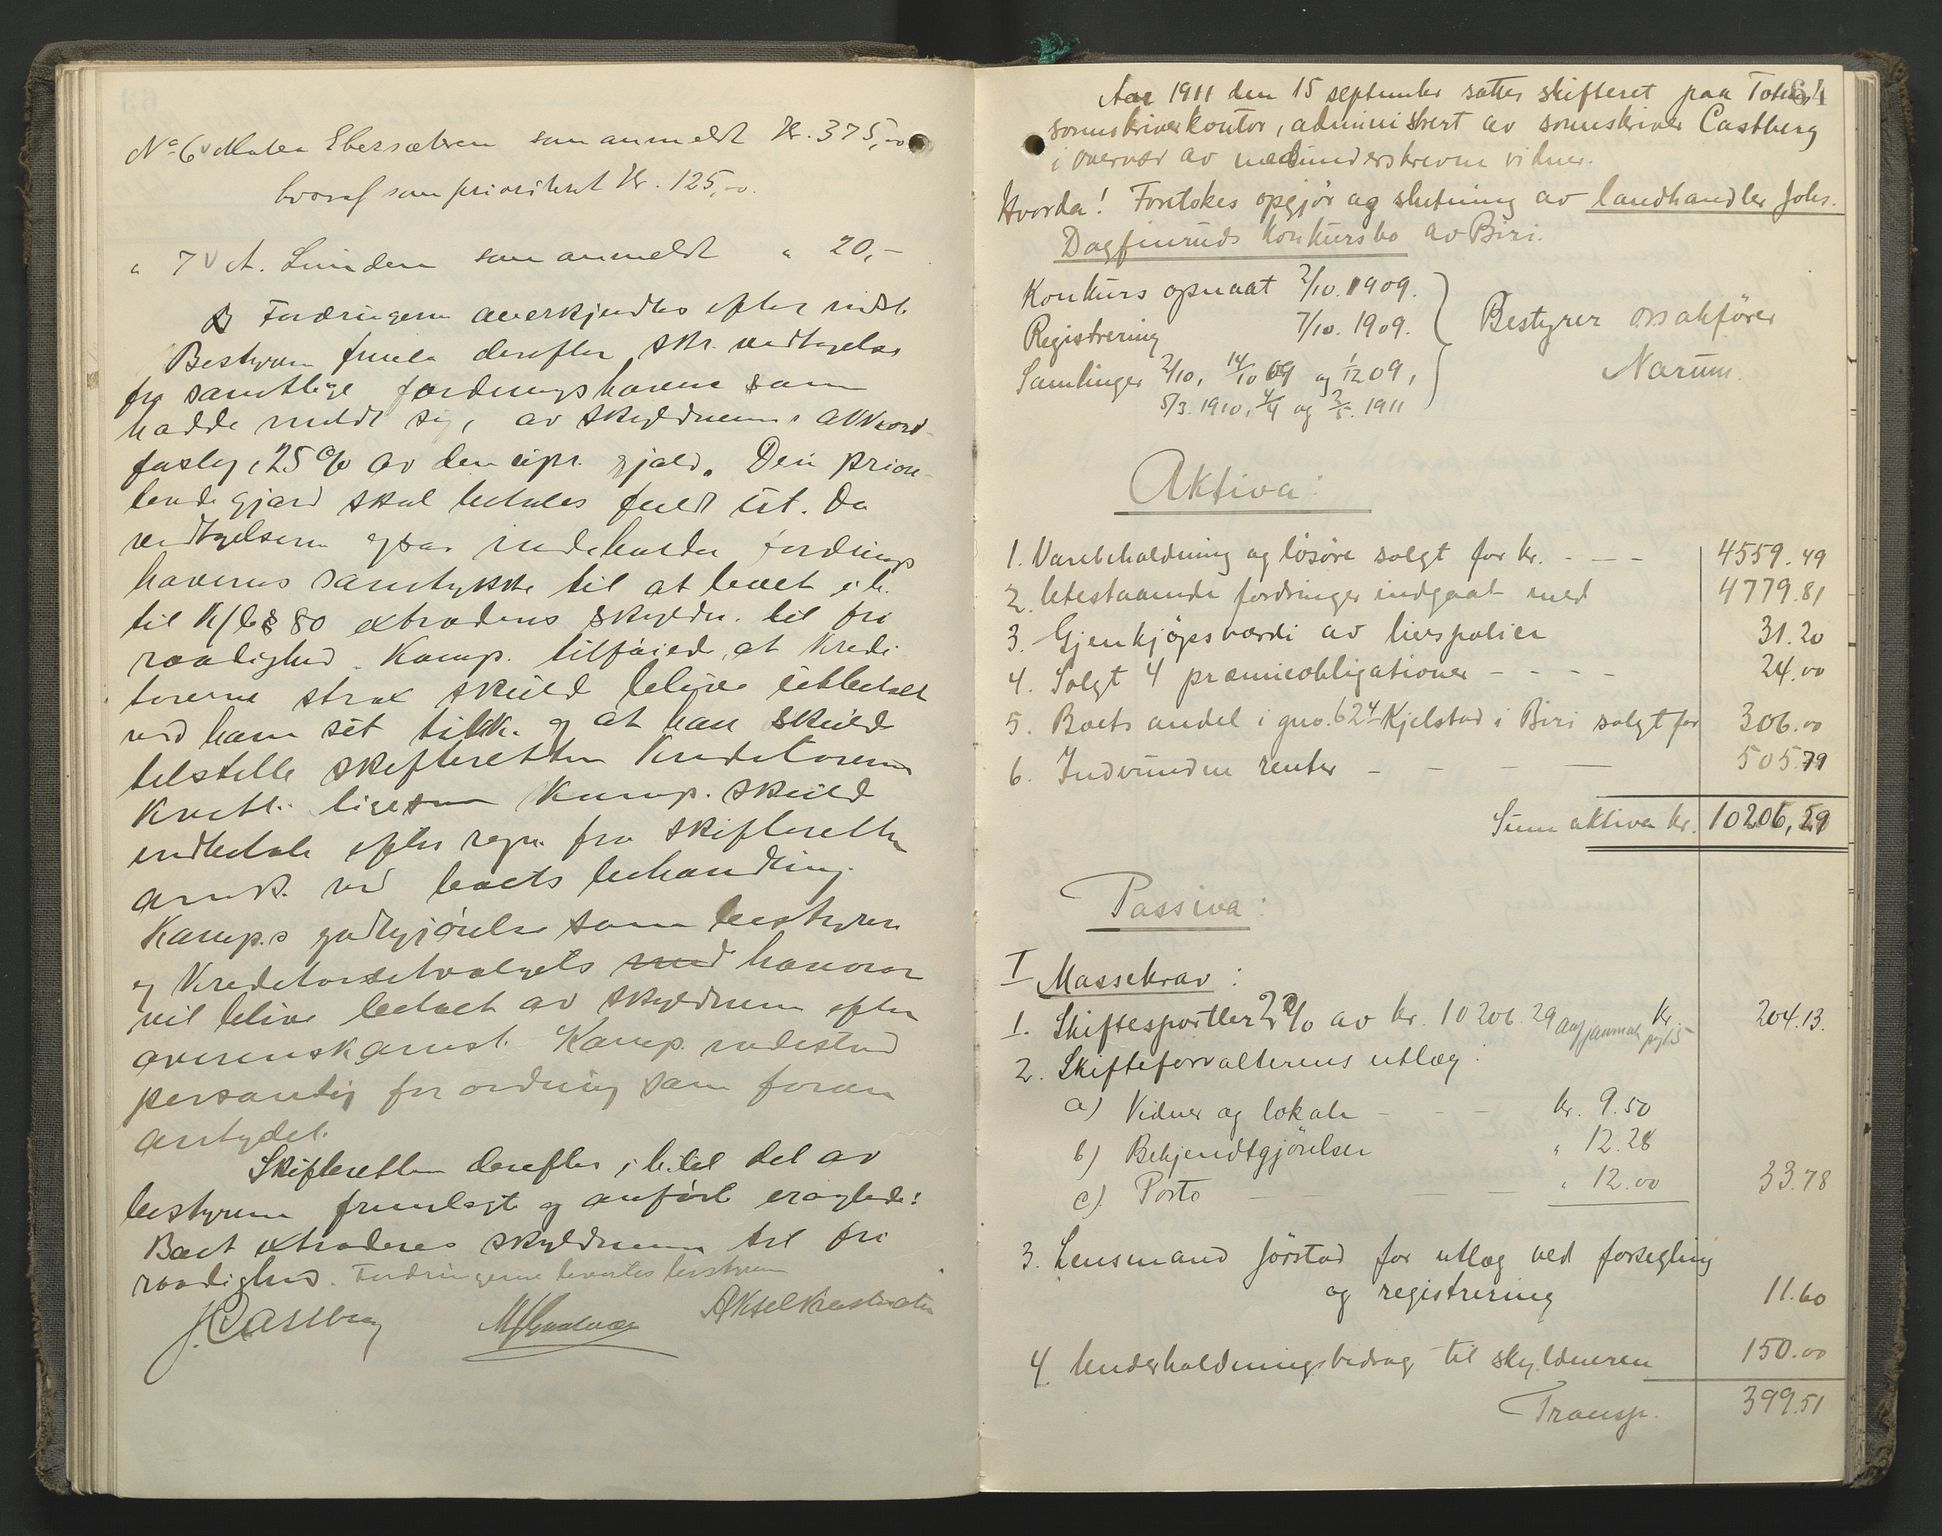 No 6 Matea Ebersæteren som anmeldt Kr. 375,00
hvoraf som prioritert Kr. 125,00.
" 7 A. Linden som anmeldt " 20,-
Fordringerne anerkjendtes efter indst.
Bestyreren fremla derefter skr. vedtagelse
fra samtlige fordringshavere som
hadde meldt sig, av skyldnerens akkord-
forslag, 25 % av den upr. gjæld. Den priori-
terte gjæld skal betales fuldt ut. Da
vedtagelsen ogsaa indeholder fordrings
havernes samtykke til at boet i h.
til K/l § 80 extraderes skyldn. til fri
raadighed. Kamp. tilføiede, at kredi
torerne strax skulde blive utbetalt
ved ham sit tilk. og at han skulde
tilstille skifteretten kreditorernes
kvitt. likesom Kamp. skulde
indbetale efter regn. fra skifteretten
omk. ved boets behandling.
Kamp.s godtgjørelse som bestyrer
og kreditorutvalgets honorar
vil blive betalt av skyldneren efter
overenskomst. Kamp. indestod
personlig for ordning som foran
antydet.
Skifteretten derefter i h. til det av
bestyreren fremlagte og anførte eragtede:
Boet extraderes skyldneren til fri
raadighed. Fordringerne levertes bestyreren
J Castberg Aksel Kristiansen
64
Aar 1911 den 15 september sattes skifteret paa Toten
sorenskriverkontor, administrert av sorenskriver Castberg
i overvær av medunderskrevne vidner.
Hvorda! Foretokes opgjør og slutning av landhandler Johs.
Dagfinruds konkursbo av Biri.
Konkurs opnaat 2/10. 1909.
Registrering 7/10. 1909.
Bestyrer o.r.sakfører
Samlinger 2/10, 14/10 09 og 1/12 09,
Narum.
5/3. 1910, 4/4 og 2/5. 1911
Aktiva:
1. Varebeholdning og løsøre solgt for kr. - - - 4559.49
2. Utestaaende fordringer indgaat med 4779.81
3. Gjenkjøpsværdi av livspolicer 31.20
4. Solgt 4 præmieobligationer - - - - 24.00
5. Boets andel i gno. 62 4 Kjelstad i Biri solgt for 306.00
6. Indvundne renter - - - - 505.79
Sum aktiva kr. 10206,29
Passiva:
I Massekrav:
1. Skiftesportler 2 % av kr. 10206.29 kr. 204.13.
2. Skifteforvalterens utlæg:
a) Vidner og lokale - - - kr. 9.50
b) Bekjendtgjørelser " 12.28
c) Porto - - " 12.00 33.78
3. Lensmand Jørstad for utlæg ved forsegling
og registrering 11.60
4. Underholdningsbidrag til skyldneren 150.00
Transp. 399.51